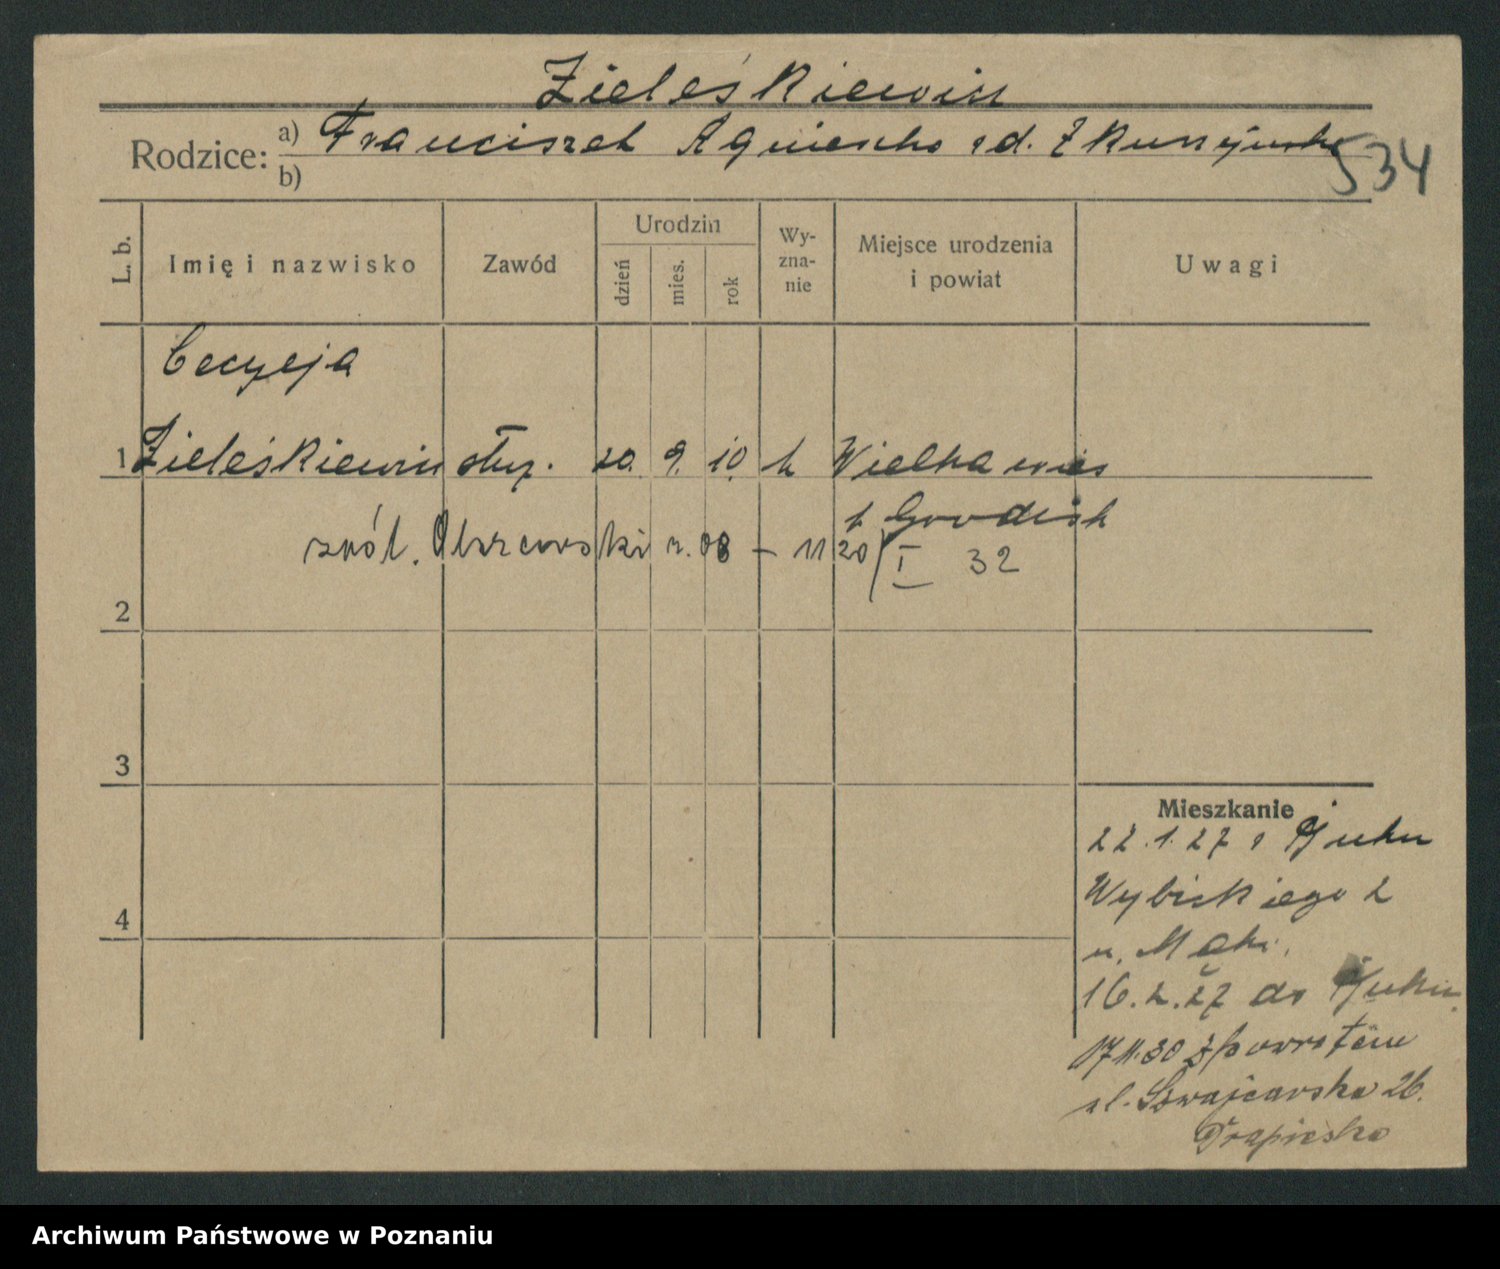 Zieleśkiewicz
Rodzice: a) Franciszek Agnieszka zd. Skuszyńska
b)
534
L. b.
Imię i nazwisko
Zawód
Urodzin
dzień
mies.
rok
Wy-
zna-
nie
Miejsce urodzenia
i powiat
Uwagi
Cecylja
1 Zieleśkiewicz służ. 20. 9. 10. k Wielka wieś
Grodzisk
zról. Olszewski r. 08 – 11 20/I 32
2
3
4
Mieszkanie
22.1.27 z Buku
Wybickiego 2
u.
16.2.27 do Buku
17 11.30 z powrotem
ul. Szwajcarska 26.
Archiwum Państwowe w Poznaniu